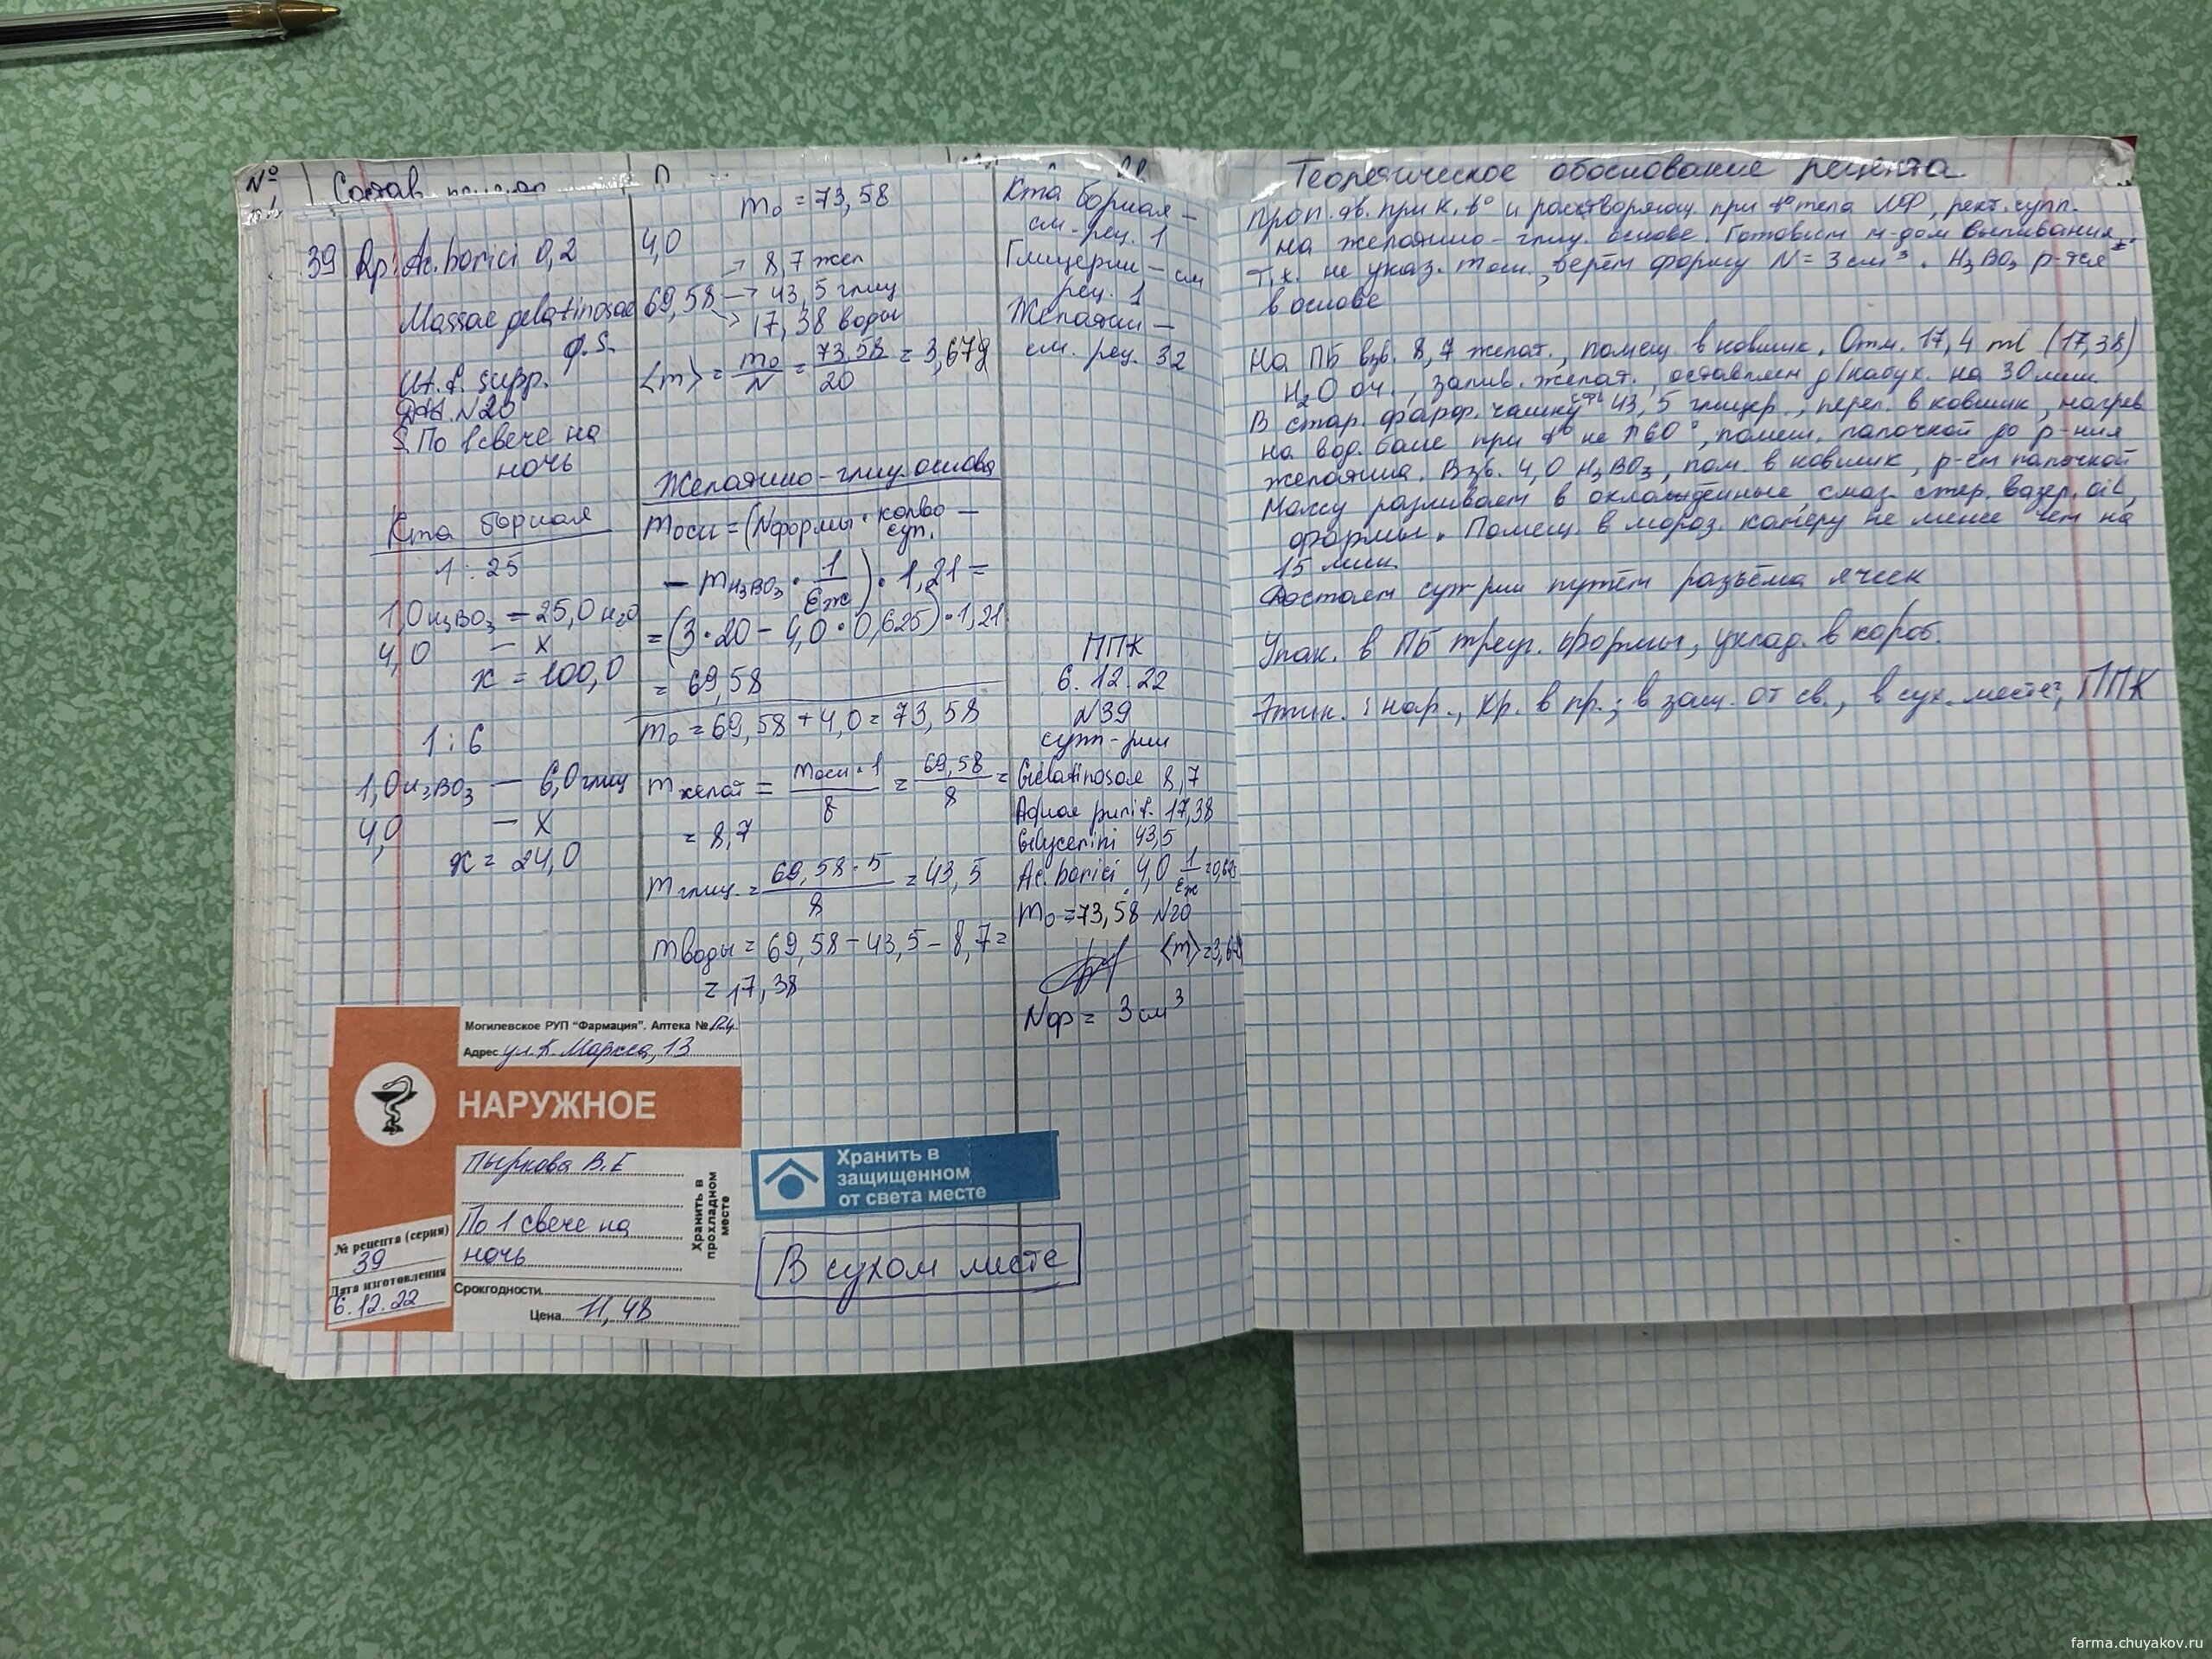 №
Состав
m₀ = 73,58
39 Rp: Ac. borici 0,2
4,0
→ 8,7 жел
Massae gelatinosae
69,58 → 43,5 глиц
→ 17,38 воды
q.s.
Ut. f. supp.
D.t.d. N20
S. По 1 свече на
ночь
⟨m⟩ = m₀/N = 73,58/20 = 3,679
К-та борная
1 : 25
1,0 H₃BO₃ – 25,0 H₂O
4,0 – x
x = 100,0
1 : 6
1,0 H₃BO₃ – 6,0 глиц
4,0 – x
x = 24,0
Желатино-глиц. основа
mосн = (Nформы · кол-во суп. –
– mH₃BO₃ · 1/Eж) · 1,21 =
= (3·20 – 4,0 · 0,625) · 1,21
= 69,58
m₀ = 69,58 + 4,0 = 73,58
mжелат = mосн·1/8 = 69,58/8 =
= 8,7
mглиц. = 69,58·5/8 = 43,5
mводы = 69,58 – 43,5 – 8,7 =
= 17,38
К-та борная –
см. рец. 1
Глицерин – см
рец. 1
Желатин –
см. рец. 32
ППК
6.12.22
N39
супп-рии
Gelatinosae 8,7
Aquae purif. 17,38
Glycerini 43,5
Ac. borici 4,0 1/Eж = 0,625
m₀ = 73,58 N20
⟨m⟩ = 3,679
Nф = 3 см³
Могилевское РУП "Фармация". Аптека №
Адрес ул. К. Маркса, 13
НАРУЖНОЕ
Пыркова В.Е
По 1 свече на
ночь
Хранить в
прохладном
месте
№ рецепта (серия)
39
Дата изготовления
6.12.22
Срокгодности
Цена 11,48
Хранить в
защищенном
от света месте
В сухом месте
Теоретическое обоснование рецепта
Проп. тв. при к. t° и растворяющ. при t° тела ЛФ, рект. супп.
на желатино-глиц. основе. Готовим м-дом выливания.
Т.к. не указ. mосн., берём форму N = 3 см³. H₃BO₃ р-тся
в основе
На ПБ взв. 8,7 желат., помещ в ковшик. Отм. 17,4 ml (17,38)
H₂O оч., залив. желат., оставляем д/набух. на 30 мин.
В стар. фарф. чашку 43,5 глицер., перен. в ковшик, нагрев
на вод. бане при t° не ↑60°, помеш. палочкой до р-ния
желатина. Взв. 4,0 H₃BO₃, пом. в ковшик, р-ем палочкой
Массу разливаем в охлаждённые, смаз. стер. вазел. oil,
формы. Помещ. в мороз. камеру не менее чем на
15 мин.
Достаем суп-рии путём разъёма ячеек
Упак. в ПБ треуг. формы, уклад. в короб.
Этик.: нар., хр. в пр.; в защ. от св., в сух. месте, ППК
farma.chuyakov.ru